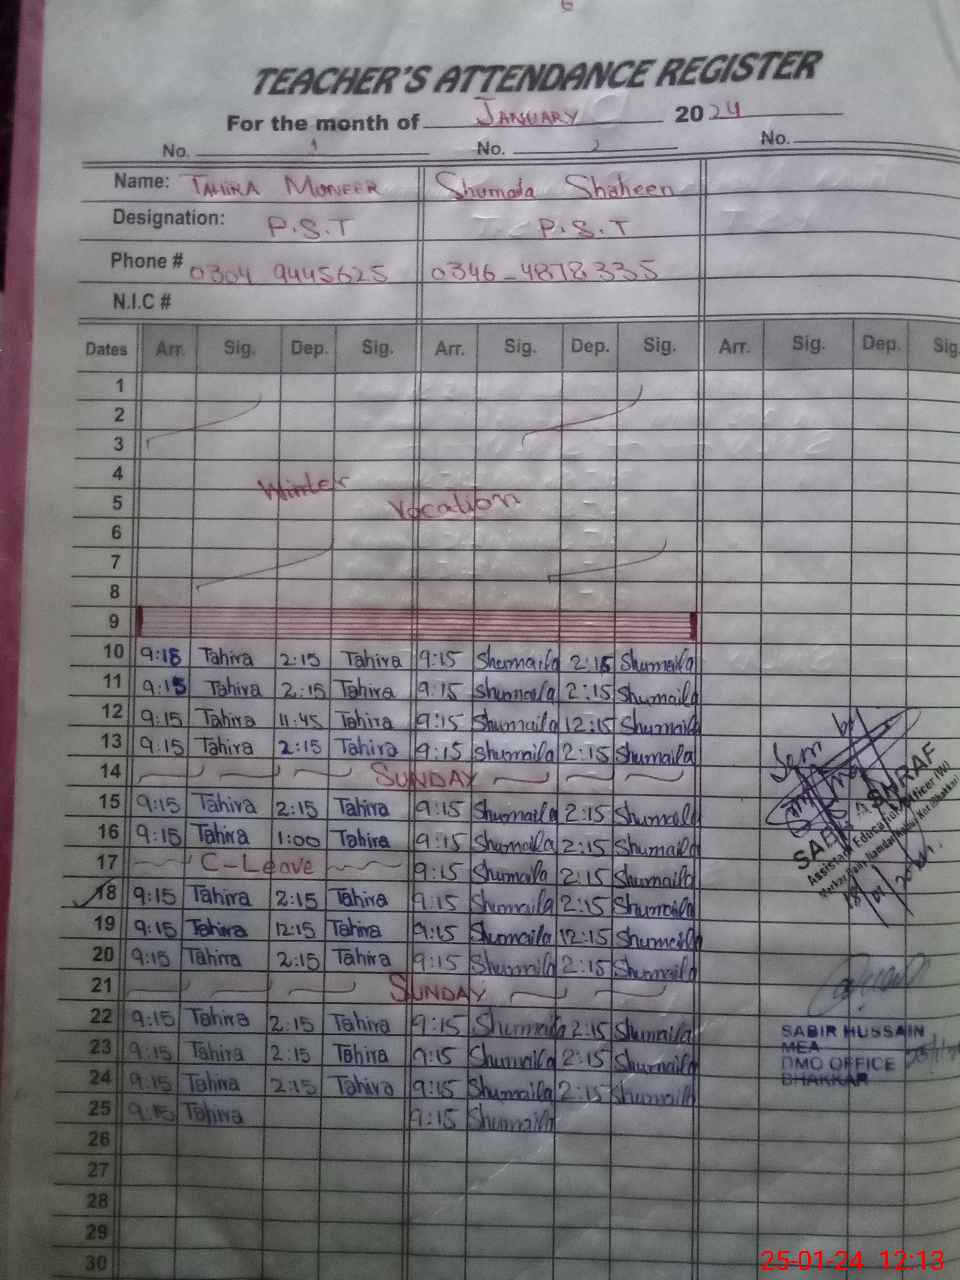 6
TEACHER'S ATTENDANCE REGISTER
For the month of JANUARY 2024
No. 1 No. 2 No.
Name: TAHIRA MONEER Shumaila Shaheen
Designation: P.S.T P.S.T
Phone # 0304 9445625 0346-4878335
N.I.C #
Dates Arr. Sig. Dep. Sig. Arr. Sig. Dep. Sig. Arr. Sig. Dep. Sig.
1
2
3
4 Winter
5 Vocation
6
7
8
9
10 9:15 Tahira 2:15 Tahira 9:15 Shumaila 2:15 Shumaila
11 9:15 Tahira 2:15 Tahira 9:15 Shumaila 2:15 Shumaila
12 9:15 Tahira 11:45 Tahira 9:15 Shumaila 12:15 Shumaila
13 9:15 Tahira 2:15 Tahira 9:15 Shumaila 2:15 Shumaila
14 SUNDAY
15 9:15 Tahira 2:15 Tahira 9:15 Shumaila 2:15 Shumaila
16 9:15 Tahira 1:00 Tahira 9:15 Shumaila 2:15 Shumaila
17 C-Leave 9:15 Shumaila 2:15 Shumaila
18 9:15 Tahira 2:15 Tahira 9:15 Shumaila 2:15 Shumaila
19 9:15 Tahira 12:15 Tahira 9:15 Shumaila 12:15 Shumaila
20 9:15 Tahira 2:15 Tahira 9:15 Shumaila 2:15 Shumaila
21 SUNDAY
22 9:15 Tahira 2:15 Tahira 9:15 Shumaila 2:15 Shumaila
23 9:15 Tahira 2:15 Tahira 9:15 Shumaila 2:15 Shumaila
24 9:15 Tahira 2:15 Tahira 9:15 Shumaila 2:15 Shumaila
25 9:15 Tahira 9:15 Shumaila
26
27
28
29
30
Seen by
ASHRAF
Assistant Education Officer (W)
SABIR HUSSAIN
MEA
DMO OFFICE
BHAKKAR
25-01-24 12:13